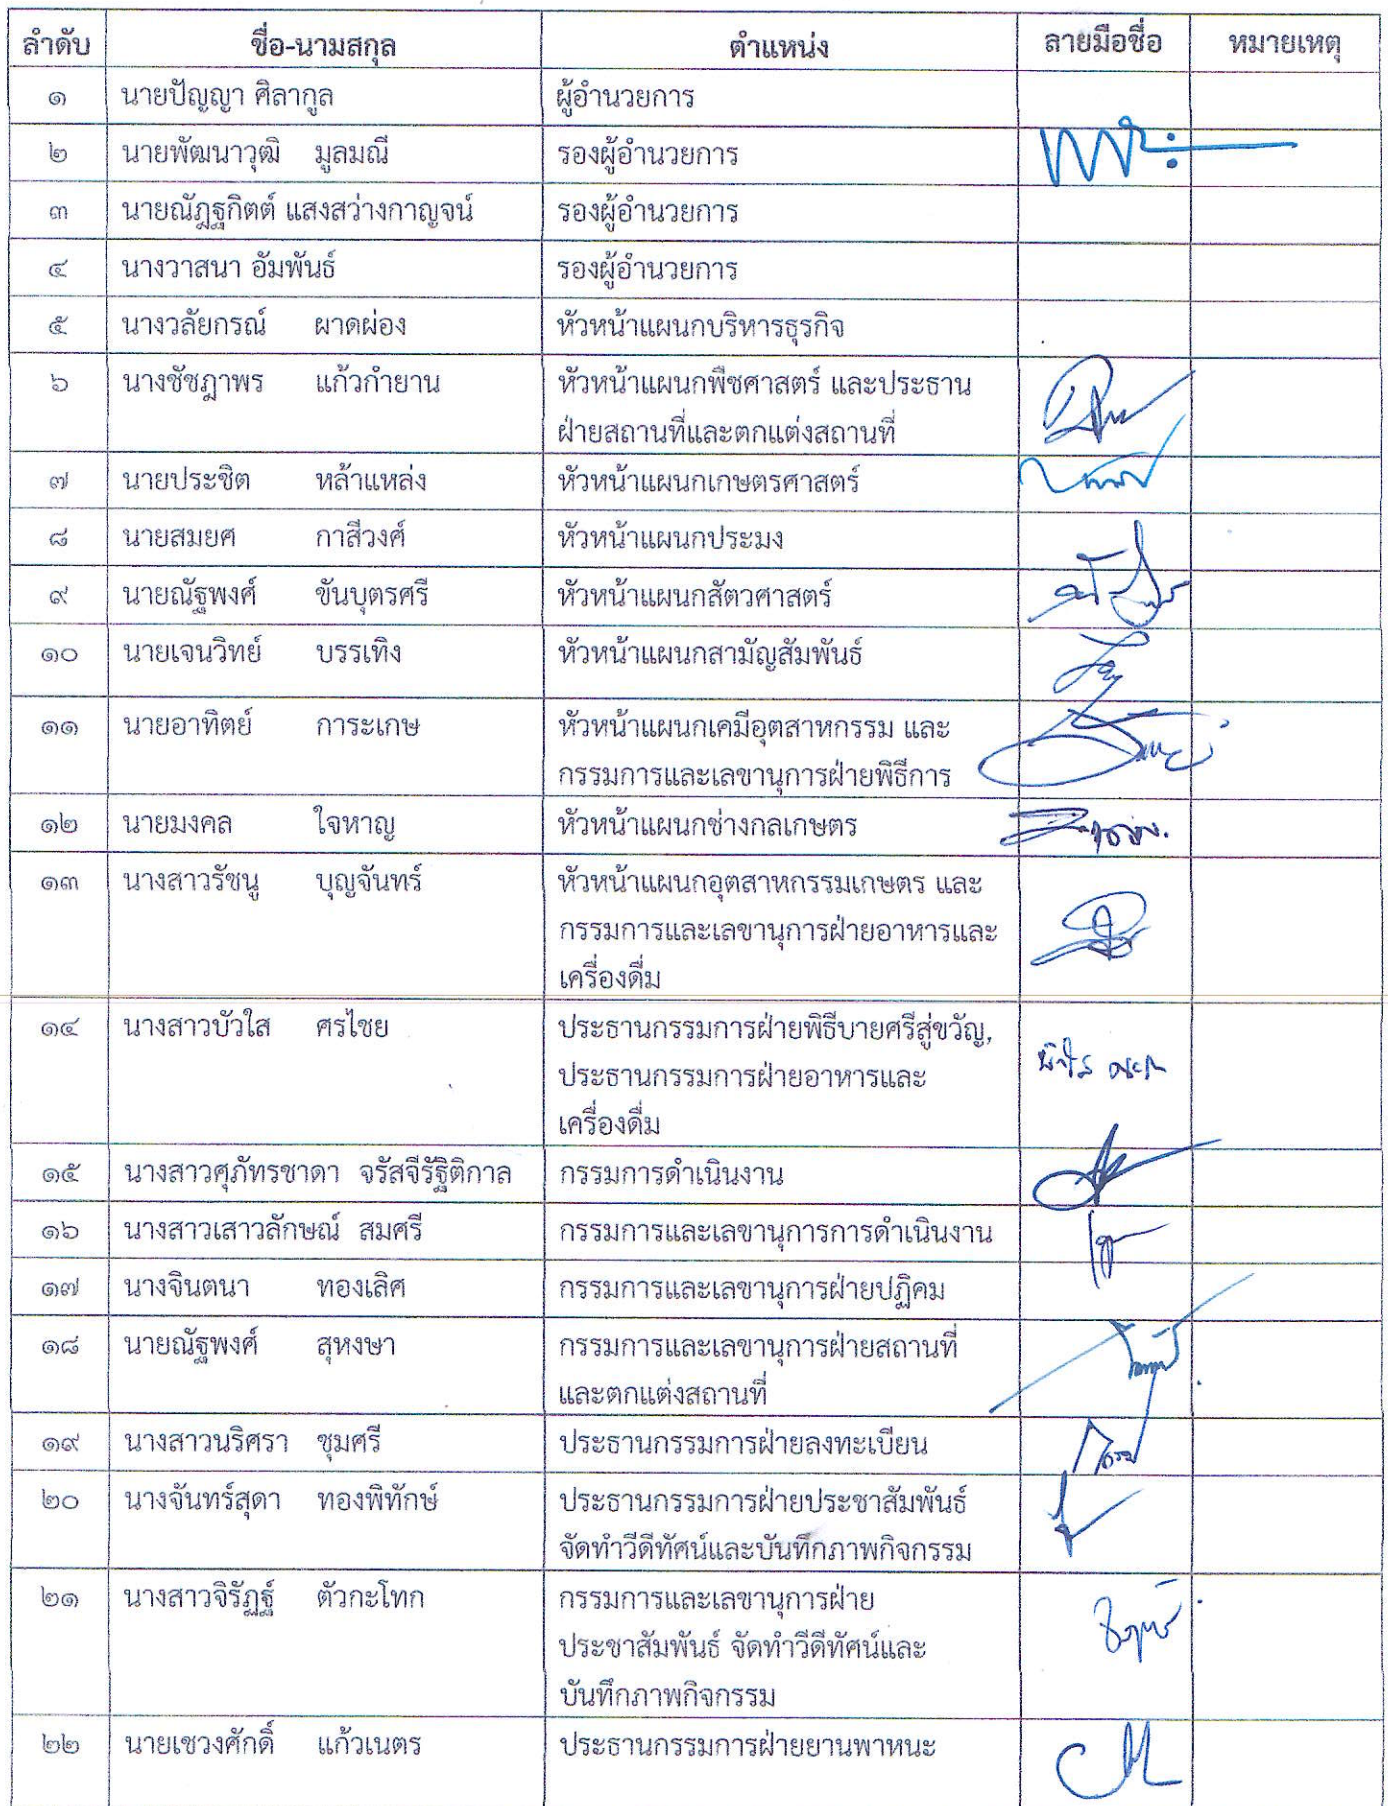 ลำดับ ชื่อ-นามสกุล ตำแหน่ง ลายมือชื่อ หมายเหตุ
๑ นายปัญญา ศิลากูล ผู้อำนวยการ
๒ นายพัฒนาวุฒิ มูลมณี รองผู้อำนวยการ
๓ นายณัฏฐกิตต์ แสงสว่างกาญจน์ รองผู้อำนวยการ
๔ นางวาสนา อัมพันธ์ รองผู้อำนวยการ
๕ นางวลัยกรณ์ ผาดผ่อง หัวหน้าแผนกบริหารธุรกิจ
๖ นางชัชฎาพร แก้วกำยาน หัวหน้าแผนกพืชศาสตร์ และประธาน
ฝ่ายสถานที่และตกแต่งสถานที่
๗ นายประชิต หล้าแหล่ง หัวหน้าแผนกเกษตรศาสตร์
๘ นายสมยศ กาสีวงศ์ หัวหน้าแผนกประมง
๙ นายณัฐพงศ์ ขันบุตรศรี หัวหน้าแผนกสัตวศาสตร์
๑๐ นายเจนวิทย์ บรรเทิง หัวหน้าแผนกสามัญสัมพันธ์
๑๑ นายอาทิตย์ การะเกษ หัวหน้าแผนกเคมีอุตสาหกรรม และ
กรรมการและเลขานุการฝ่ายพิธีการ
๑๒ นายมงคล ใจหาญ หัวหน้าแผนกช่างกลเกษตร
๑๓ นางสาวรัชนู บุญจันทร์ หัวหน้าแผนกอุตสาหกรรมเกษตร และ
กรรมการและเลขานุการฝ่ายอาหารและ
เครื่องดื่ม
๑๔ นางสาวบัวใส ศรไชย ประธานกรรมการฝ่ายพิธีบายศรีสู่ขวัญ,
ประธานกรรมการฝ่ายอาหารและ
เครื่องดื่ม
๑๕ นางสาวศุภัทรชาดา จรัสจีรัฐิติกาล กรรมการดำเนินงาน
๑๖ นางสาวเสาวลักษณ์ สมศรี กรรมการและเลขานุการการดำเนินงาน
๑๗ นางจินตนา ทองเลิศ กรรมการและเลขานุการฝ่ายปฏิคม
๑๘ นายณัฐพงศ์ สุหงษา กรรมการและเลขานุการฝ่ายสถานที่
และตกแต่งสถานที่
๑๙ นางสาวนริศรา ชุมศรี ประธานกรรมการฝ่ายลงทะเบียน
๒๐ นางจันทร์สุดา ทองพิทักษ์ ประธานกรรมการฝ่ายประชาสัมพันธ์
จัดทำวีดีทัศน์และบันทึกภาพกิจกรรม
๒๑ นางสาวจิรัฏฐ์ ตัวกะโทก กรรมการและเลขานุการฝ่าย
ประชาสัมพันธ์ จัดทำวีดีทัศน์และ
บันทึกภาพกิจกรรม
๒๒ นายเชวงศักดิ์ แก้วเนตร ประธานกรรมการฝ่ายยานพาหนะ